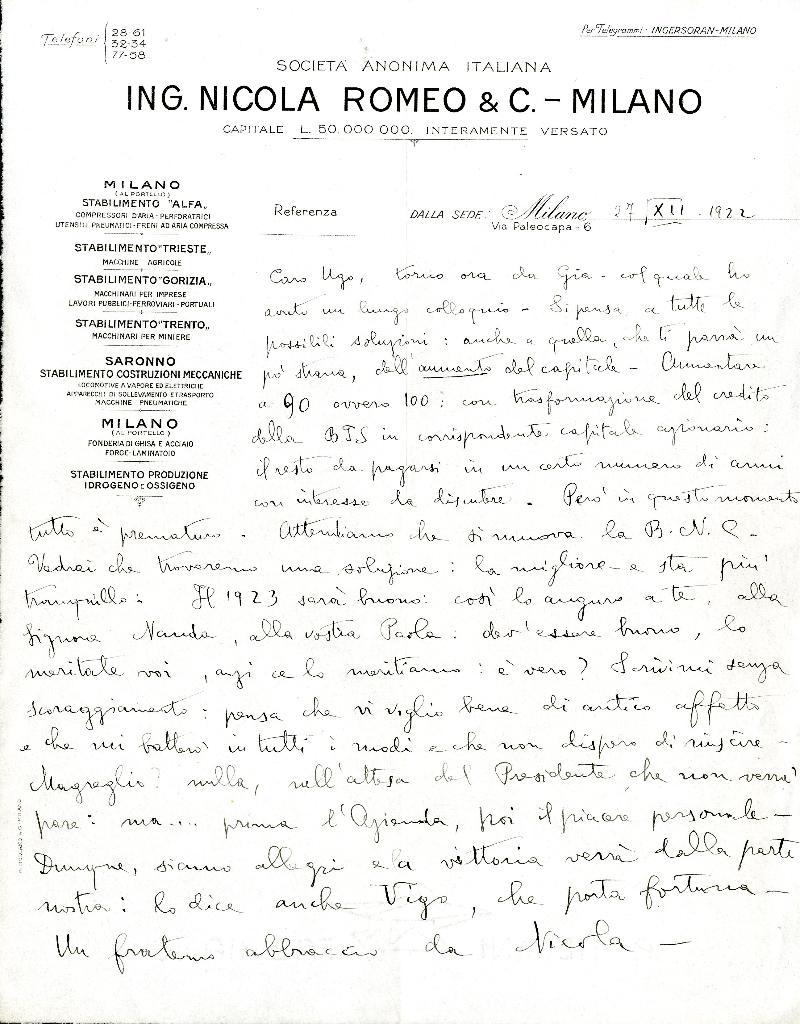 Telefoni 28-61
32-34
77-58
Per Telegrammi: INGERSORAN-MILANO
SOCIETÀ ANONIMA ITALIANA
ING. NICOLA ROMEO & C. – MILANO
CAPITALE L. 50.000.000. INTERAMENTE VERSATO
MILANO
(AL PORTELLO)
STABILIMENTO "ALFA„
COMPRESSORI D'ARIA - PERFORATRICI
UTENSILI PNEUMATICI - FRENI AD ARIA COMPRESSA
STABILIMENTO "TRIESTE„
MACCHINE AGRICOLE
STABILIMENTO "GORIZIA„
MACCHINARI PER IMPRESE
LAVORI PUBBLICI-FERROVIARI-PORTUALI
STABILIMENTO "TRENTO„
MACCHINARI PER MINIERE
SARONNO
STABILIMENTO COSTRUZIONI MECCANICHE
LOCOMOTIVE A VAPORE ED ELETTRICHE
APPARECCHI DI SOLLEVAMENTO E TRASPORTO
MACCHINE PNEUMATICHE
MILANO
(AL PORTELLO)
FONDERIA DI GHISA E ACCIAIO
FORGE-LAMINATOIO
STABILIMENTO PRODUZIONE
IDROGENO E OSSIGENO
Referenza
DALLA SEDE: Milano 27, XII - 1922
Via Paleocapa - 6
Caro Ugo, torno ora da Gia - col quale ho
avuto un lungo colloquio - Si pensa a tutte le
possibili soluzioni: anche a quella, che ti parrà un
po' strana, dell'aumento del capitale - Aumentare
a 90 ovvero 100: con trasformazione del credito
della BIS in corrispondente capitale azionario:
il resto da pagarsi in un certo numero di anni
con interesse da discutere. Però in questo momento
tutto è prematuro. Attendiamo che si muova la B.N.C.
Vedrai che troveremo una soluzione: la migliore - e sta più
tranquillo: Il 1923 sarà buono: così lo auguro a te, alla
Signora Nanda, alla vostra Paola: dev'essere buono, lo
meritate voi, anzi ce lo meritiamo: è vero? Scrivimi senza
scoraggiamento: pensa che vi voglio bene di antico affetto
e che mi batterò in tutti i modi e che non dispero di riuscire -
Magreglio? nulla, nell'attesa del Presidente che non verrà
pare: ma.... prima l'Azienda, poi il piacere personale -
Dunque, siamo allegri e la vittoria verrà dalla parte
nostra: lo dice anche Vigo, che porta fortuna -
Un fraterno abbraccio da Nicola -